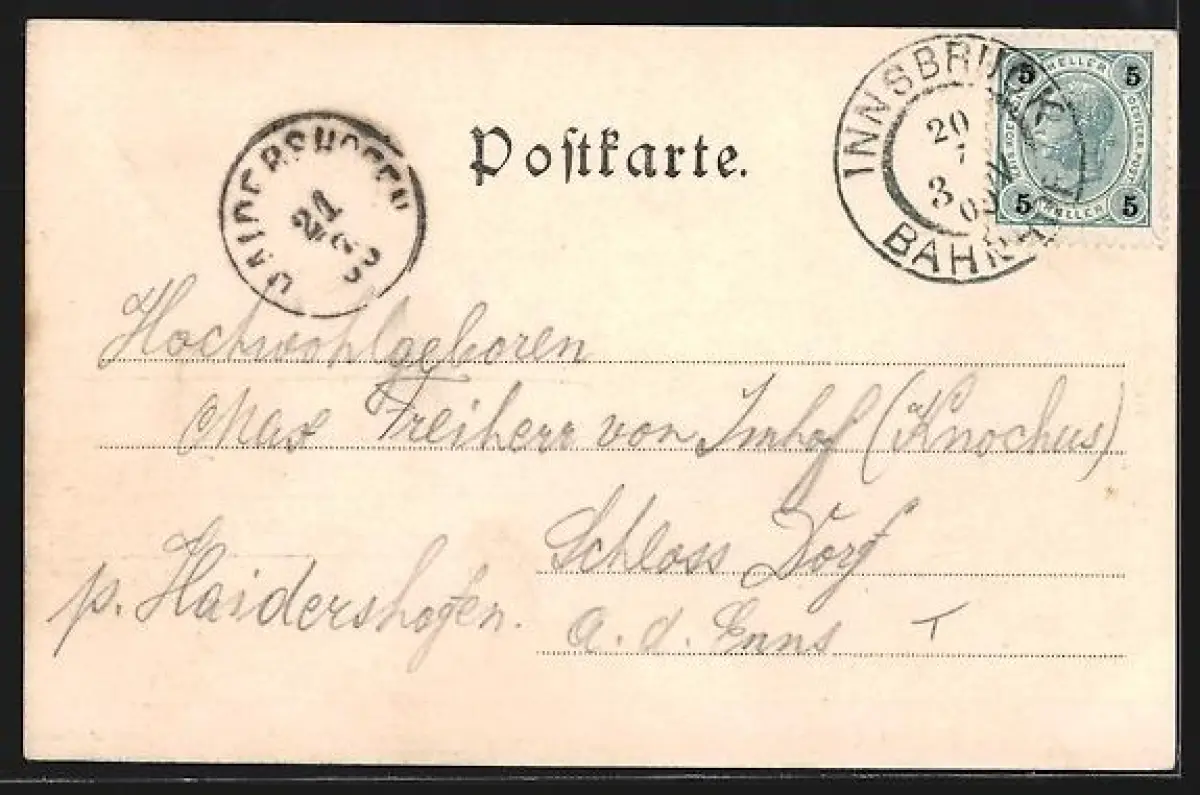 Postkarte.
INNSBRUCK
20
3
BAHNH
5 HELLER 5
5 HELLER 5
HAIDERSHOFEN
21
Hochwohlgeboren
Max Freiherr von Imhof (Knochus)
Schloss Dorf
p. Haidershofen.
a. d. Enns